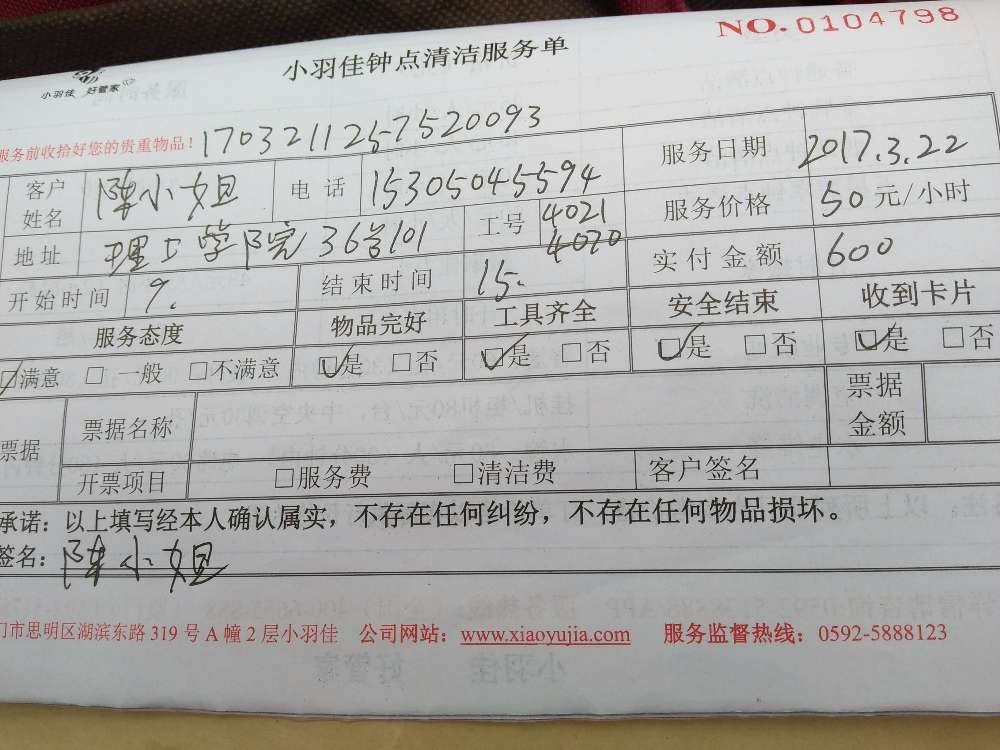 NO.0104798
小羽佳钟点清洁服务单
小羽佳 好管家
服务前收拾好您的贵重物品！ 17032112575200​93
客户姓名 陈小姐 电话 15305045594 服务日期 2017.3.22
地址 理工学院36号101 工号 4021 4020 服务价格 50元/小时
开始时间 9. 结束时间 15. 实付金额 600
服务态度 物品完好 工具齐全 安全结束 收到卡片
☑满意 □一般 □不满意 ☑是 □否 ☑是 □否 ☑是 □否 ☑是 □否
票据 票据名称 票据金额
开票项目 □服务费 □清洁费 客户签名
承诺：以上填写经本人确认属实，不存在任何纠纷，不存在任何物品损坏。
签名：陈小姐
门市思明区湖滨东路319号A幢2层小羽佳 公司网站：www.xiaoyujia.com 服务监督热线：0592-5888123
小羽佳 好管家